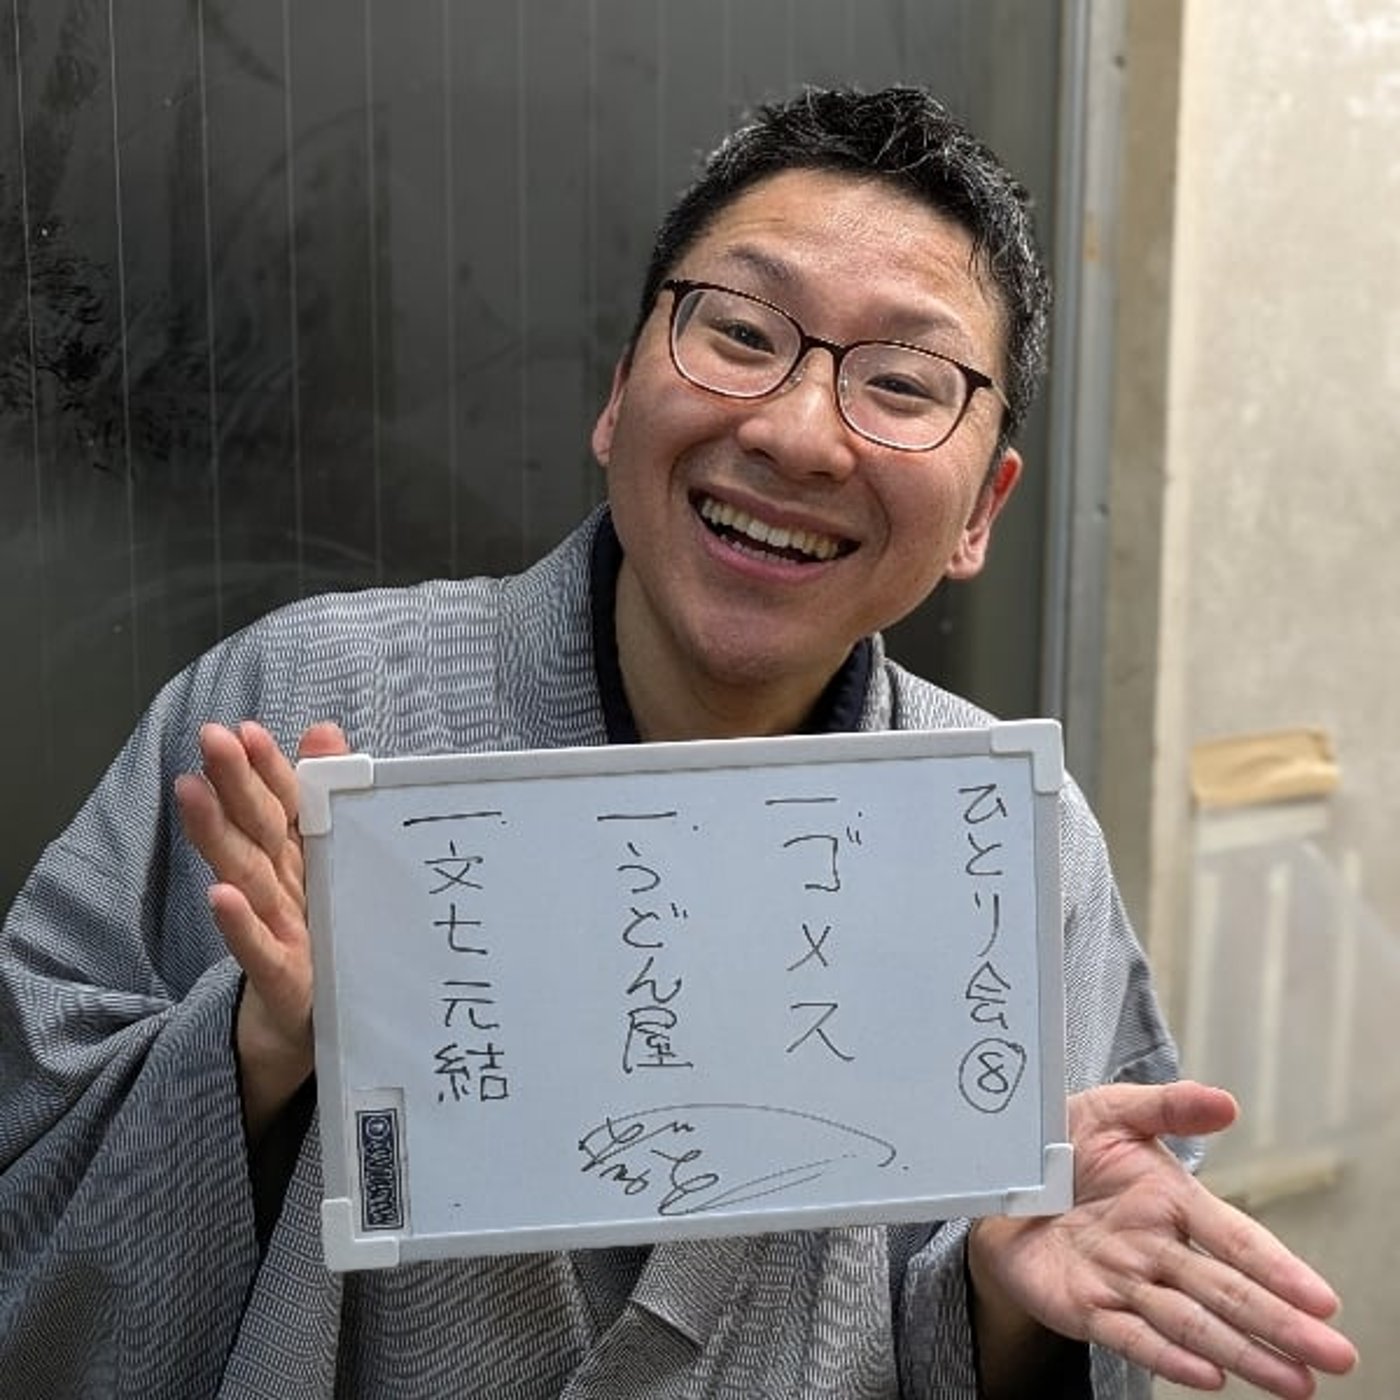 ひとり会⑧
一.ゴメス
一.うどん屋
一.文七元結